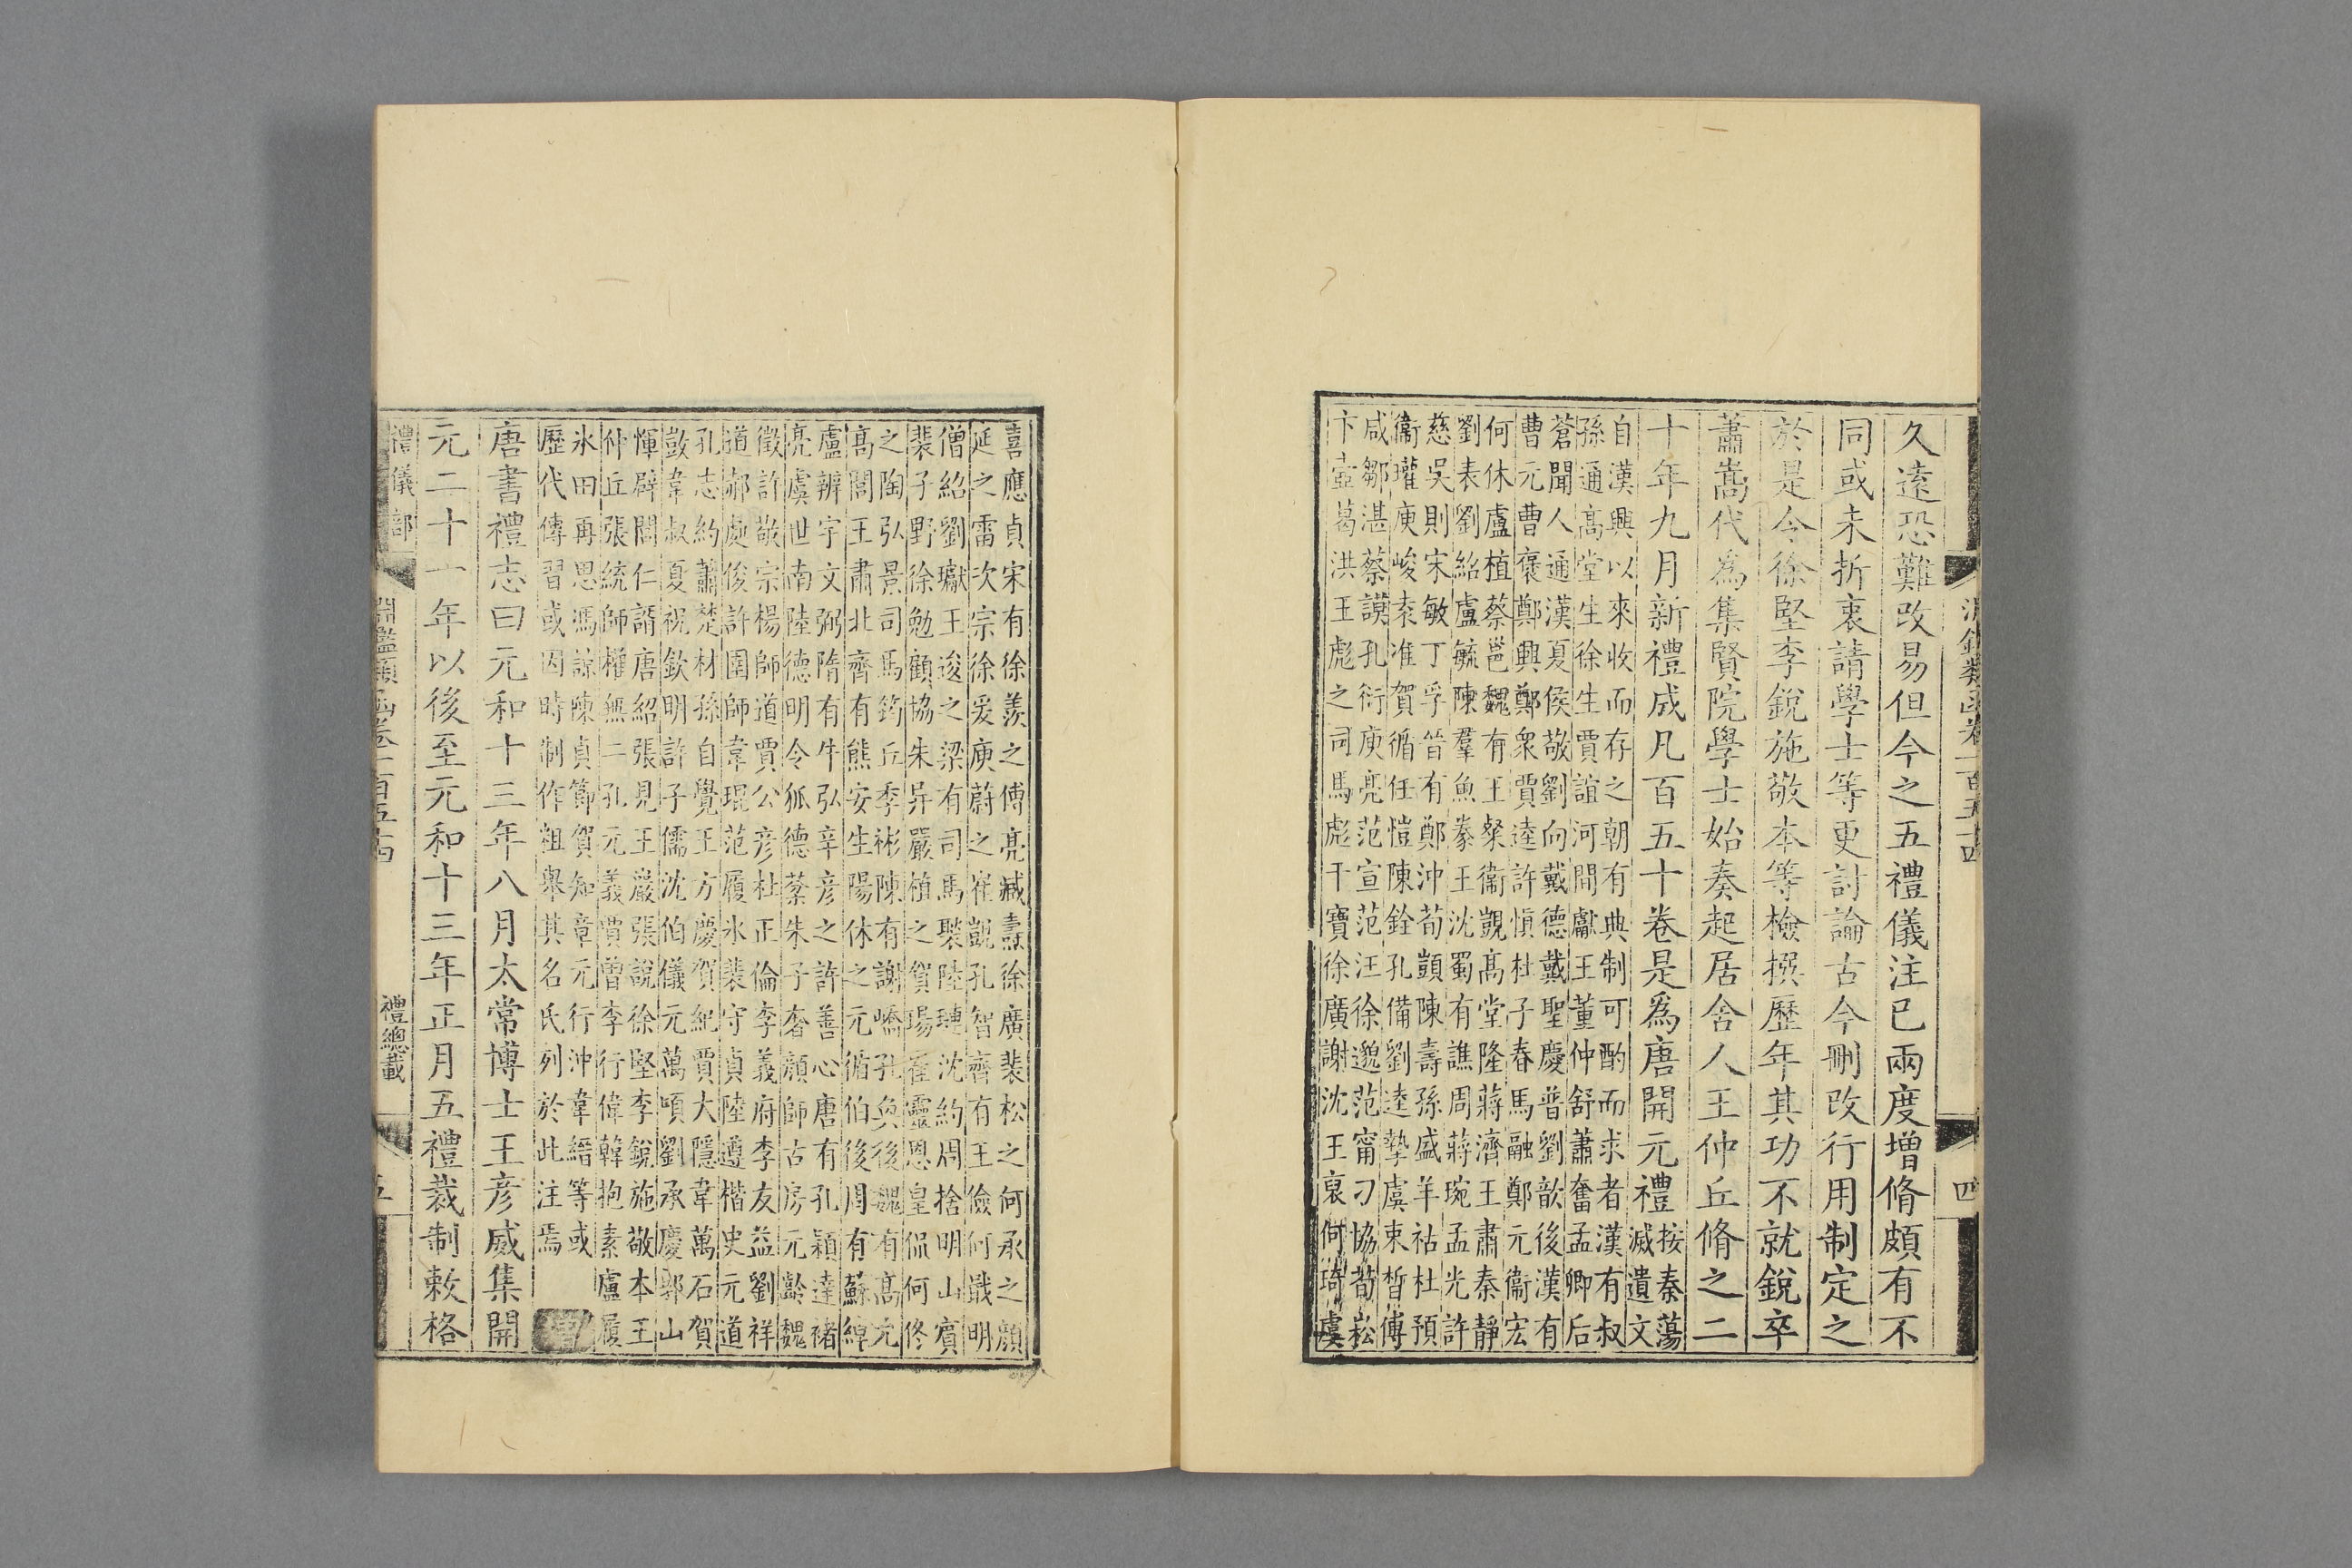 淵鑑類函卷一百五十四
四
久遠恐難改易但今之五禮儀注已兩度增脩頗有不
同或未折衷請學士等更討論古今刪改行用制定之
於是令徐堅李銳施敬本等檢撰歷年其功不就銳卒
蕭嵩代爲集賢院學士始奏起居舍人王仲丘脩之二
十年九月新禮成凡百五十卷是爲唐開元禮
按秦蕩
滅遺文
自漢興以來收而存之朝有典制可酌而求者漢有叔
孫通高堂生徐生賈誼河間獻王董仲舒蕭奮孟卿后
蒼聞人通漢夏侯敬劉向戴德戴聖慶普劉歆後漢有
曹元曹褒鄭興鄭衆賈逵許慎杜子春馬融鄭元衞宏
何休盧植蔡邕魏有王粲衞覬高堂隆蔣濟王肅秦靜
劉表劉紹盧毓陳羣魚豢王沈蜀有譙周蔣琬孟光許
慈吳則宋敏丁孚晉有鄭沖荀顗陳壽孫盛羊祜杜預
衞瓘庾峻袁准賀循任愷陳銓孔備劉逵摯虞束晳傅
咸鄒湛蔡謨孔衍庾亮范宣范汪徐邈范甯刁協荀崧
卞壼葛洪王彪之司馬彪干寶徐廣謝沈王裒何琦虞
喜應貞宋有徐羨之傅亮臧燾徐廣裴松之何承之顏
延之雷次宗徐爰庾蔚之崔覬孔智齊有王儉何戢明
僧紹劉瓛王逡之梁有司馬褧陸璉沈約周捨明山賓
裴子野徐勉顧協朱异嚴植之賀瑒崔靈恩皇侃何佟
之陶弘景司馬筠丘季彬陳有謝嶠孔奐後魏有高允
高閭王肅北齊有熊安生陽休之元循伯後周有蘇綽
盧辨宇文弼隋有牛弘辛彥之許善心唐有孔穎達褚
亮虞世南陸德明令狐德棻朱子奢顏師古房元齡魏
徵許敬宗楊師道賈公彥杜正倫李義府李友益劉祥
道郝處俊許圉師韋琨范履冰裴守貞陸遵楷史元道
孔志約蕭楚材孫自覺王方慶賀紀賈大隱韋萬石賀
敳韋叔夏祝欽明許子儒沈伯儀元萬頃劉承慶郭山
惲辟閭仁諝唐紹張見王巖張說徐堅李銳施敬本王
仲丘張統師權無二孔元義賈曾李行偉韓抱素盧履
冰田再思馮諒陳貞節賀知章元行沖韋縚等或
歷代傳習或因時制作粗舉其名氏列於此注焉
唐書禮志曰元和十三年八月太常博士王彥威集開
元二十一年以後至元和十三年正月五禮裁制敕格
禮儀部
淵鑑類函卷一百五十四
禮總載
五